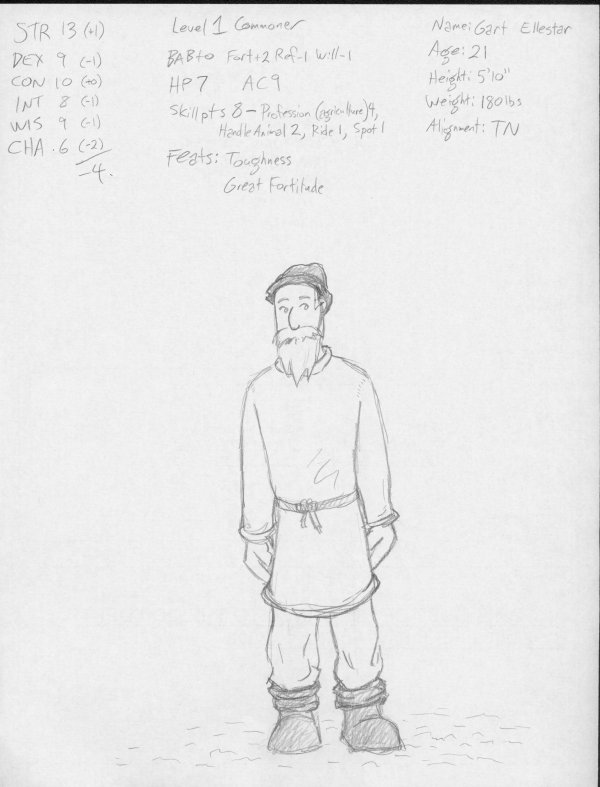 STR 13 (+1)
DEX 9 (-1)
CON 10 (+0)
INT 8 (-1)
WIS 9 (-1)
CHA . 6 (-2)
-4.
Level 1 Commoner
BAB +0 Fort +2 Ref -1 Will -1
HP 7 AC 9
Skill pts 8 - Profession (agriculture) 4,
Handle Animal 2, Ride 1, Spot 1
Feats: Toughness
Great Fortitude
Name: Gart Ellestar
Age: 21
Height: 5'10"
Weight: 180 lbs
Alignment: TN